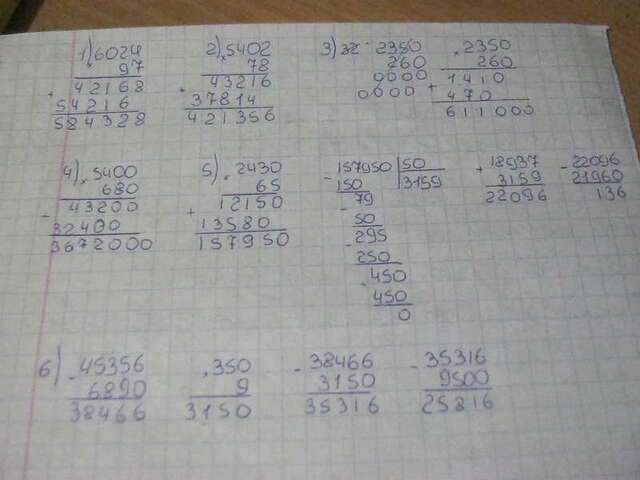 1) 6024 2) 5402 3) 2350 2350
97 78 260 260
42168 43216 0000 1410
54216 37814 0000 470
584328 421356 611000
4) 5400 5) 2430 157950 50 18937 22096
680 65 150 3159 3159 21960
43200 12150 79 22096 136
32400 13580 50
3672000 157950 295
250
450
450
0
6) 45356 350 38466 35316
6890 9 3150 9500
38466 3150 35316 25816